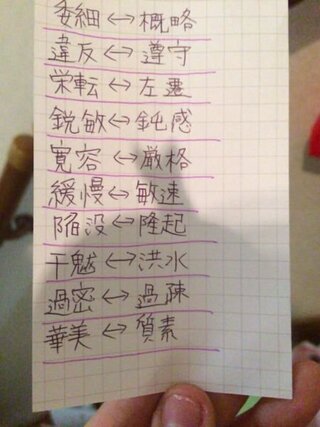 委細⇔概略
違反⇔遵守
栄転⇔左遷
鋭敏⇔鈍感
寛容⇔厳格
緩慢⇔敏速
陥没⇔隆起
干魃⇔洪水
過密⇔過疎
華美⇔質素